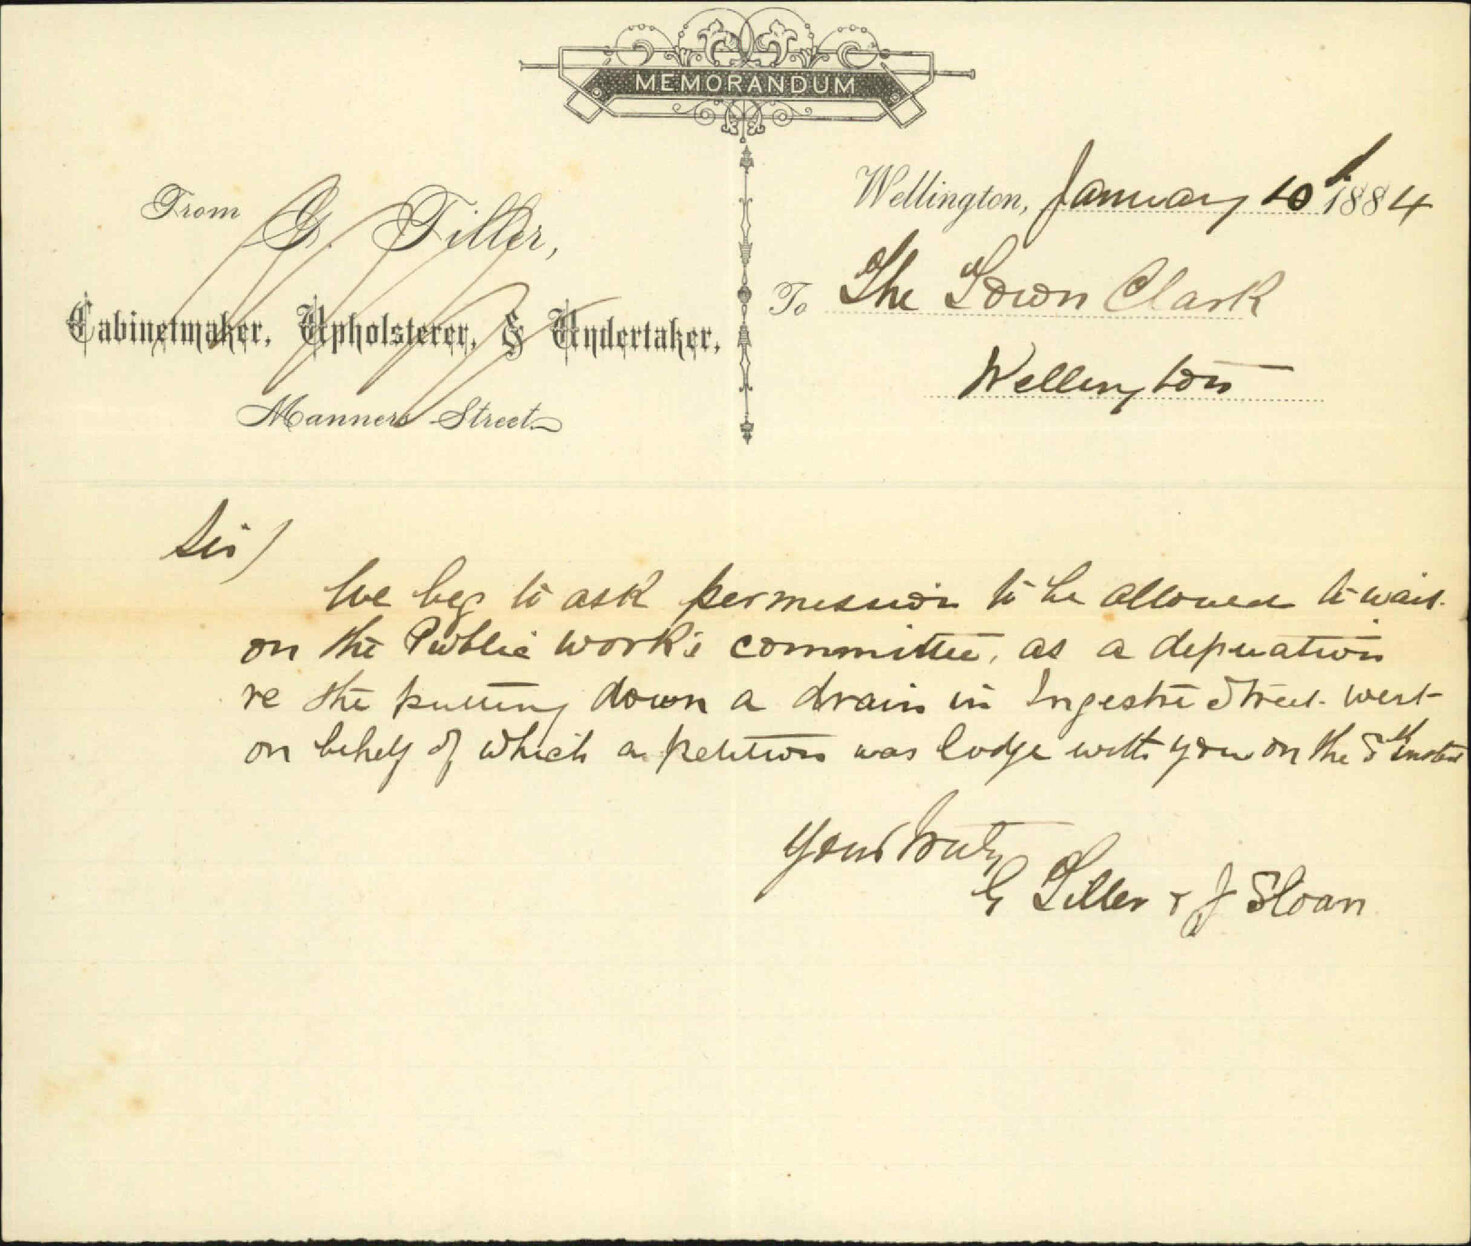 MEMORANDUM
From G. Tiller,
Cabinetmaker, Upholsterer, & Undertaker,
Manners Street
Wellington, January 10th 1884
To The Town Clark
Wellington
Sir)
We beg to ask permission to be allowed to wait
on the Public work's committee, as a depuation
re the putting down a drain in Ingestre Street west
on behalf of which a petition was lodge with you on the 5th Instant
Yours truly
G Tiller & J Sloan